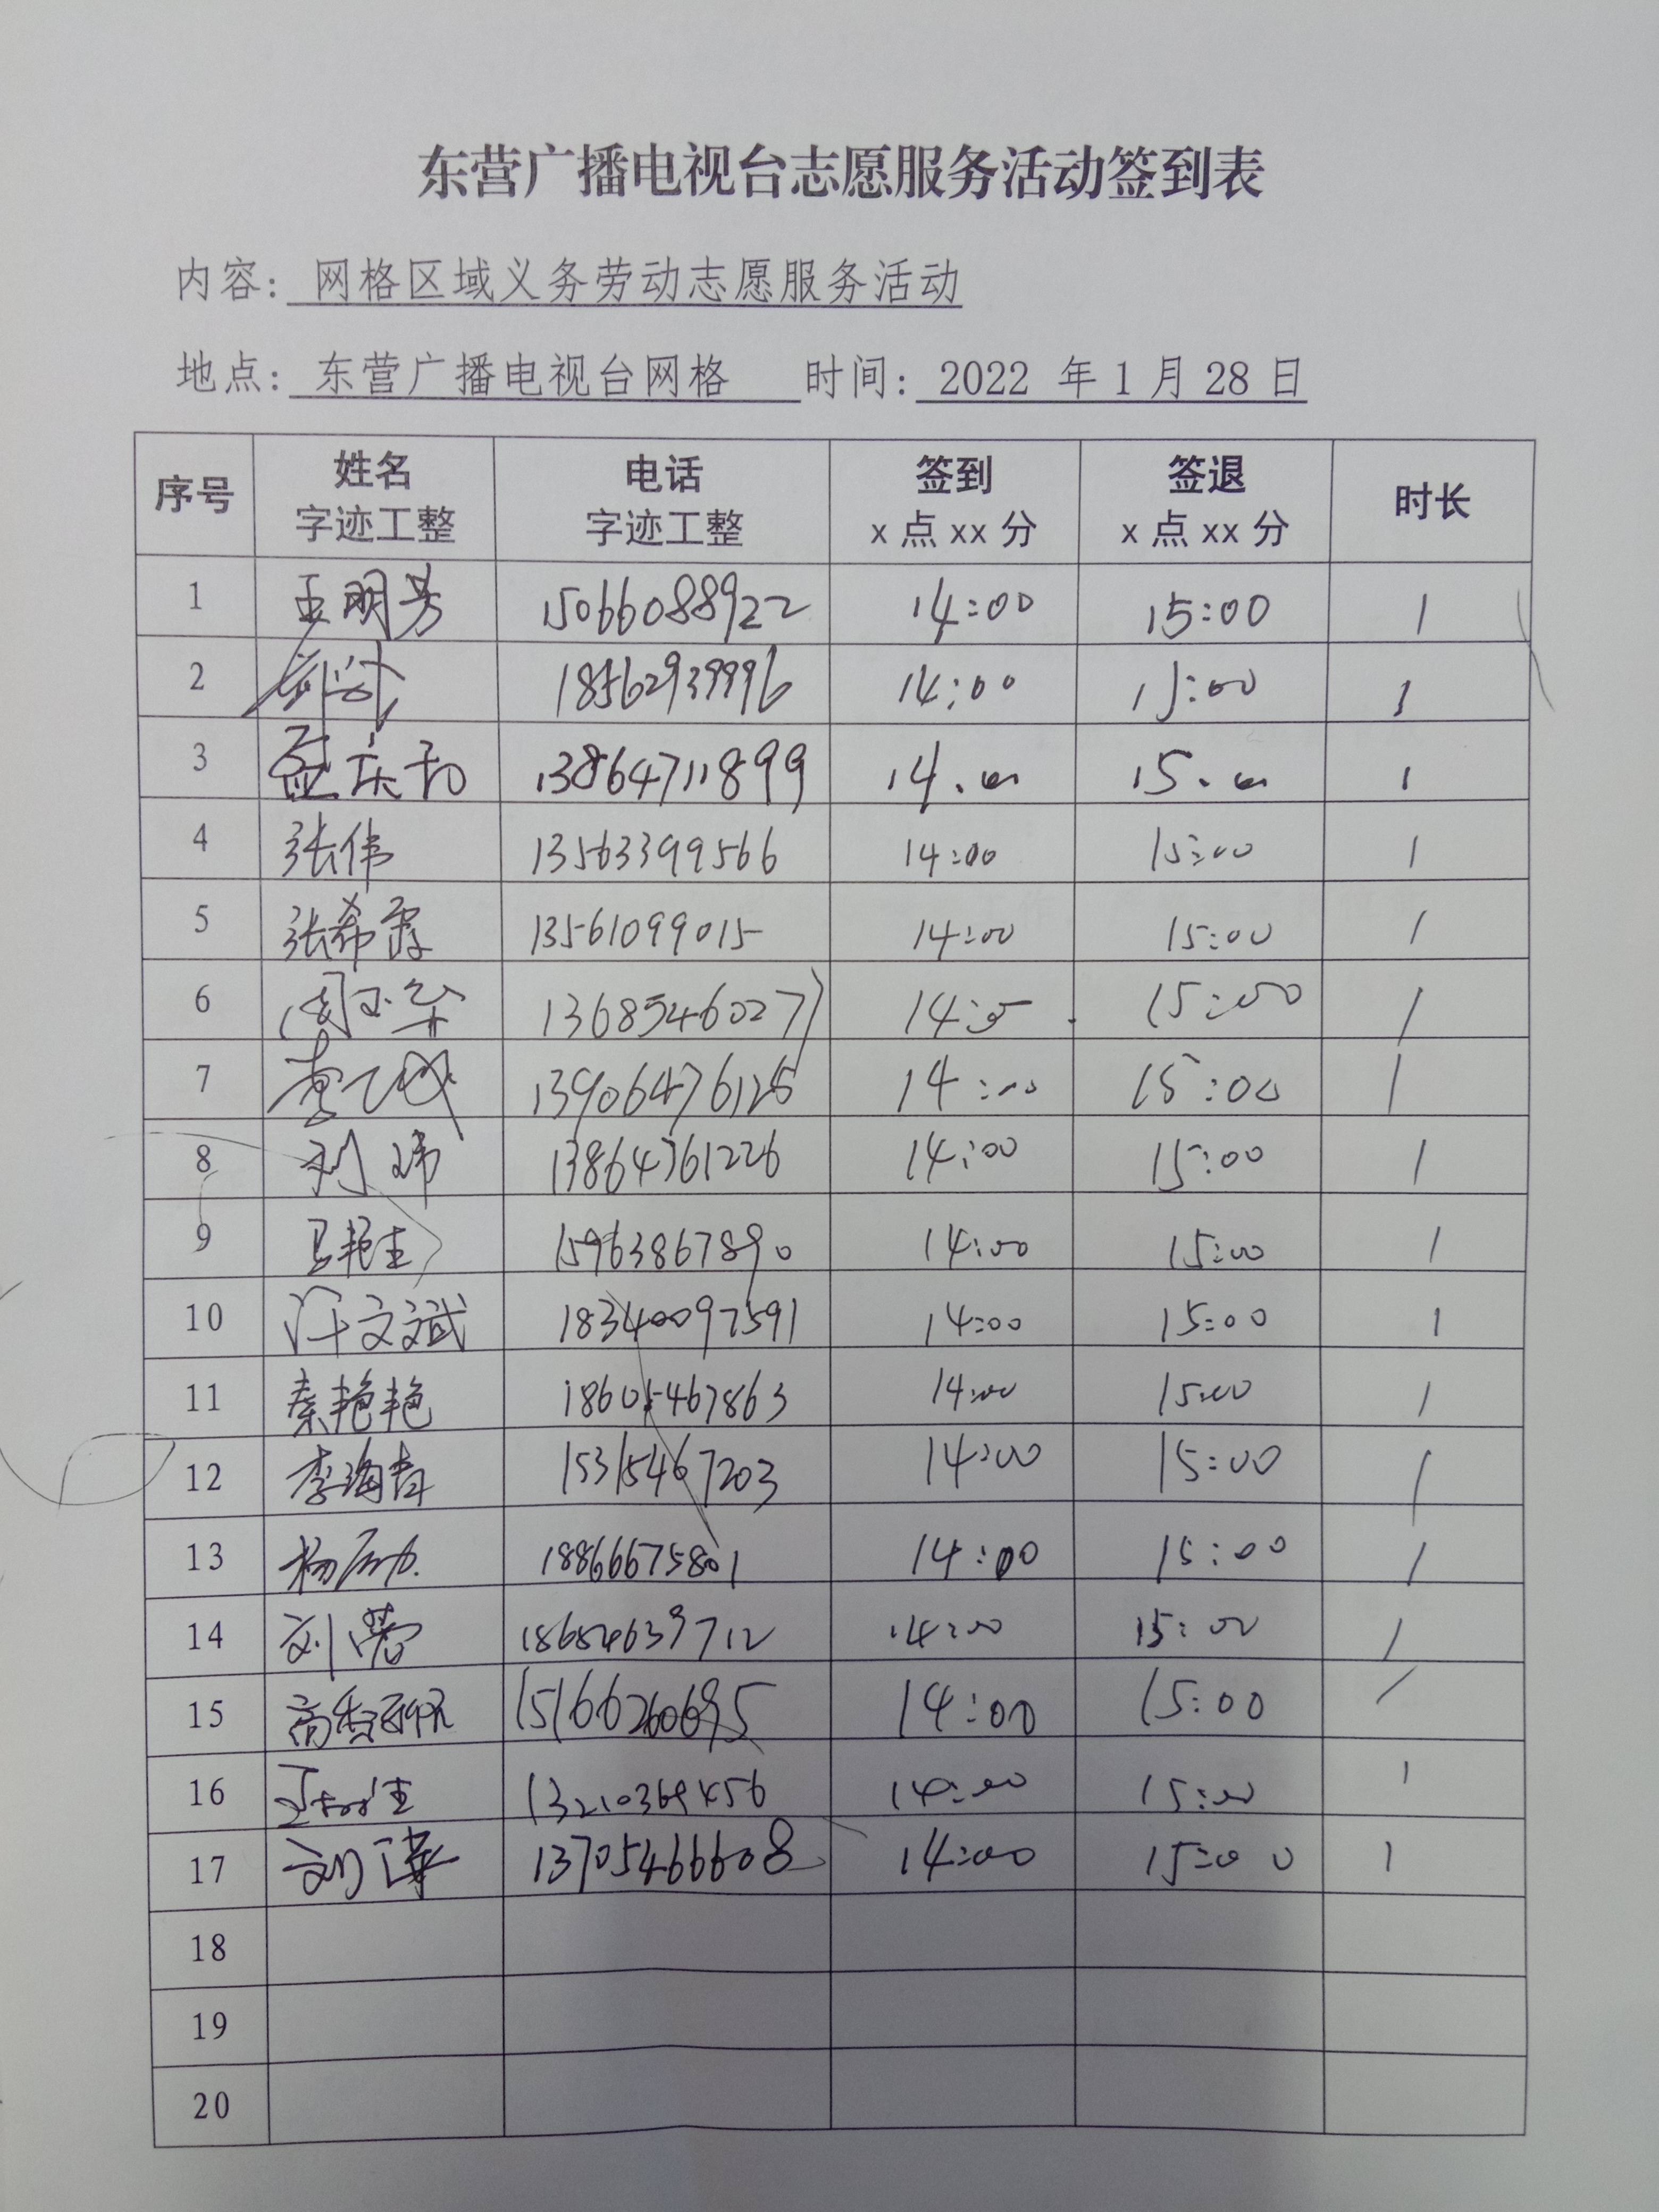 东营广播电视台志愿服务活动签到表
内容: 网格区域义务劳动志愿服务活动
地点: 东营广播电视台网格 时间: 2022 年 1 月 28 日
序号 姓名 电话 签到 签退 时长
字迹工整 字迹工整 x 点 xx 分 x 点 xx 分
1 王明芳 15066088922 14:00 15:00 1
2 18562939996 14:00 15:00 1
3 孟庆和 13864711899 14.00 15.00 1
4 张伟 13563399566 14:00 15:00 1
5 张希霞 13561099015 14:00 15:00 1
6 13685460277 15:00 1
7 13906476125 14:00 15:00 1
8 刘玮 13864761226 14:00 15:00 1
9 马艳生 15963867890 14:00 15:00 1
10 许文斌 18340097591 14:00 15:00 1
11 秦艳艳 18605467863 14:00 15:00 1
12 李海青 15315467203 14:00 15:00 1
13 18866675801 14:00 15:00 1
14 刘莹 18684639712 14:00 15:00 1
15 15166260695 14:00 15:00 1
16 13210369456 14:00 15:00 1
17 13705466608 14:00 15:00 1
18
19
20